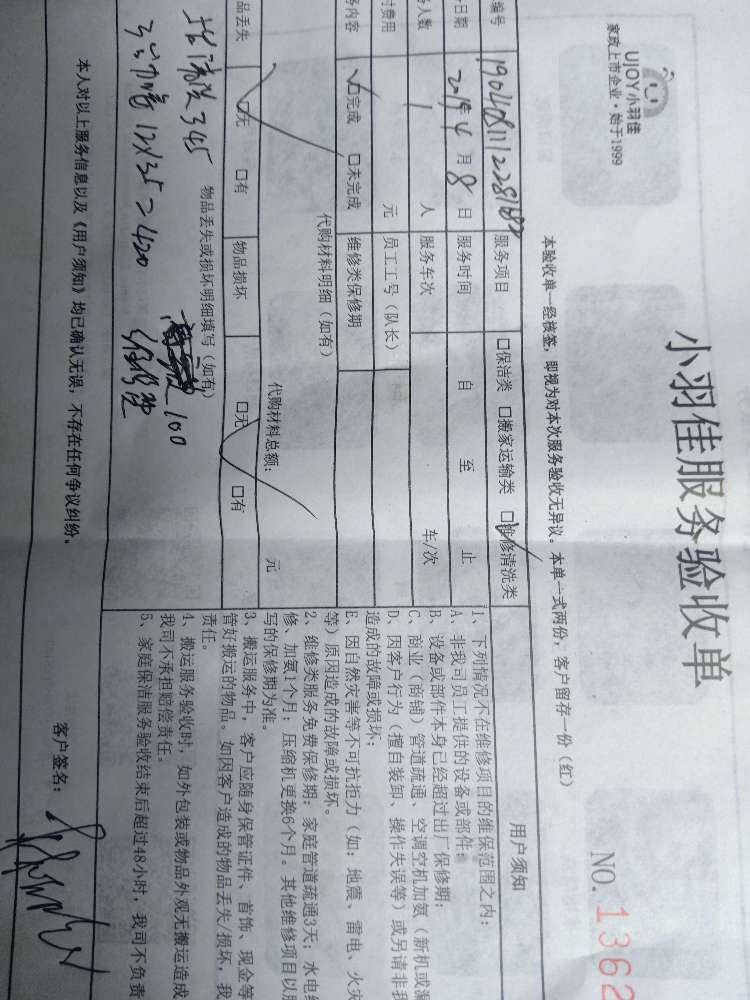 UJOY小羽佳
家政上市企业·始于1999
小羽佳服务验收单
NO. 1362
本验收单一经核签，即视为对本次服务验收无异议。本单一式两份，客户留存一份（红）
编号 服务项目 □保洁类 □搬家运输类 □维修清洗类
日期 2019年4月8日 服务时间 自 至 止
人数 1 人 服务车次 车/次
费用 元 员工工号（队长）
务内容 □完成 □未完成 维修类保修期
代购材料明细（如有）
代购材料总额： 元
品丢失 □无 □有 物品损坏 □无 □有
物品丢失或损坏明细填写（如有）
345
12×35=420
100
用户须知
1、下列情况不在维修项目的维保范围之内：
A、非我司员工提供的设备或部件；
B、设备或部件本身已经超过出厂保修期；
C、商业（商铺）管道疏通、空调空机加氨（新机或漏
D、因客户行为（擅自装卸、操作失误等）或另请非我
造成的故障或损坏；
E、因自然灾害等不可抗拒力（如：地震、雷电、火灾
等）原因造成的故障或损坏。
2、维修类服务免费保修期：家庭管道疏通3天；水电维
修、加氨1个月；压缩机更换6个月。其他维修项目以服
写的保修期为准。
3、搬运服务中，客户应随身保管证件、首饰、现金等
管好搬运的物品。如因客户造成的物品丢失/损坏，我
责任。
4、搬运服务验收时，如外包装或物品外观无搬运造成
我司不承担赔偿责任。
5、家庭保洁服务验收结束后超过48小时，我司不负责
本人对以上服务信息以及《用户须知》均已确认无误，不存在任何争议纠纷。
客户签名：